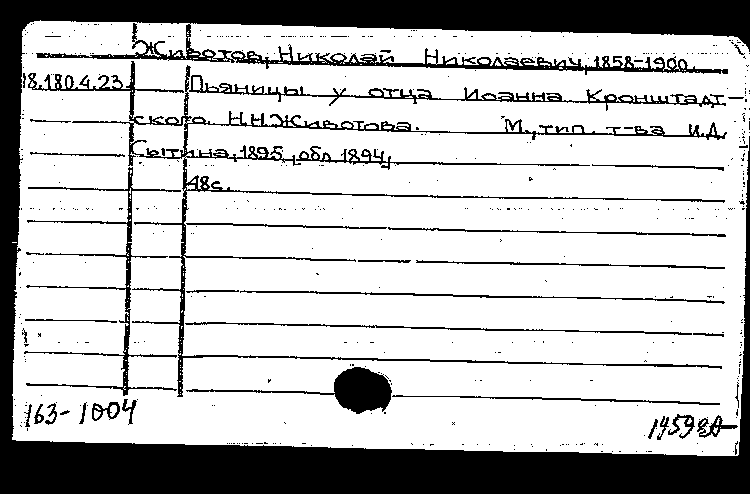 Животов, Николай Николаевич, 1858-1900.
18.180.4.23. Пьяницы у отца Иоанна Кронштадт-
ского Н.Н.Животова. М., тип. т-ва И.Д.
Сытина, 1895, обл 1894,
48с.
163-1004